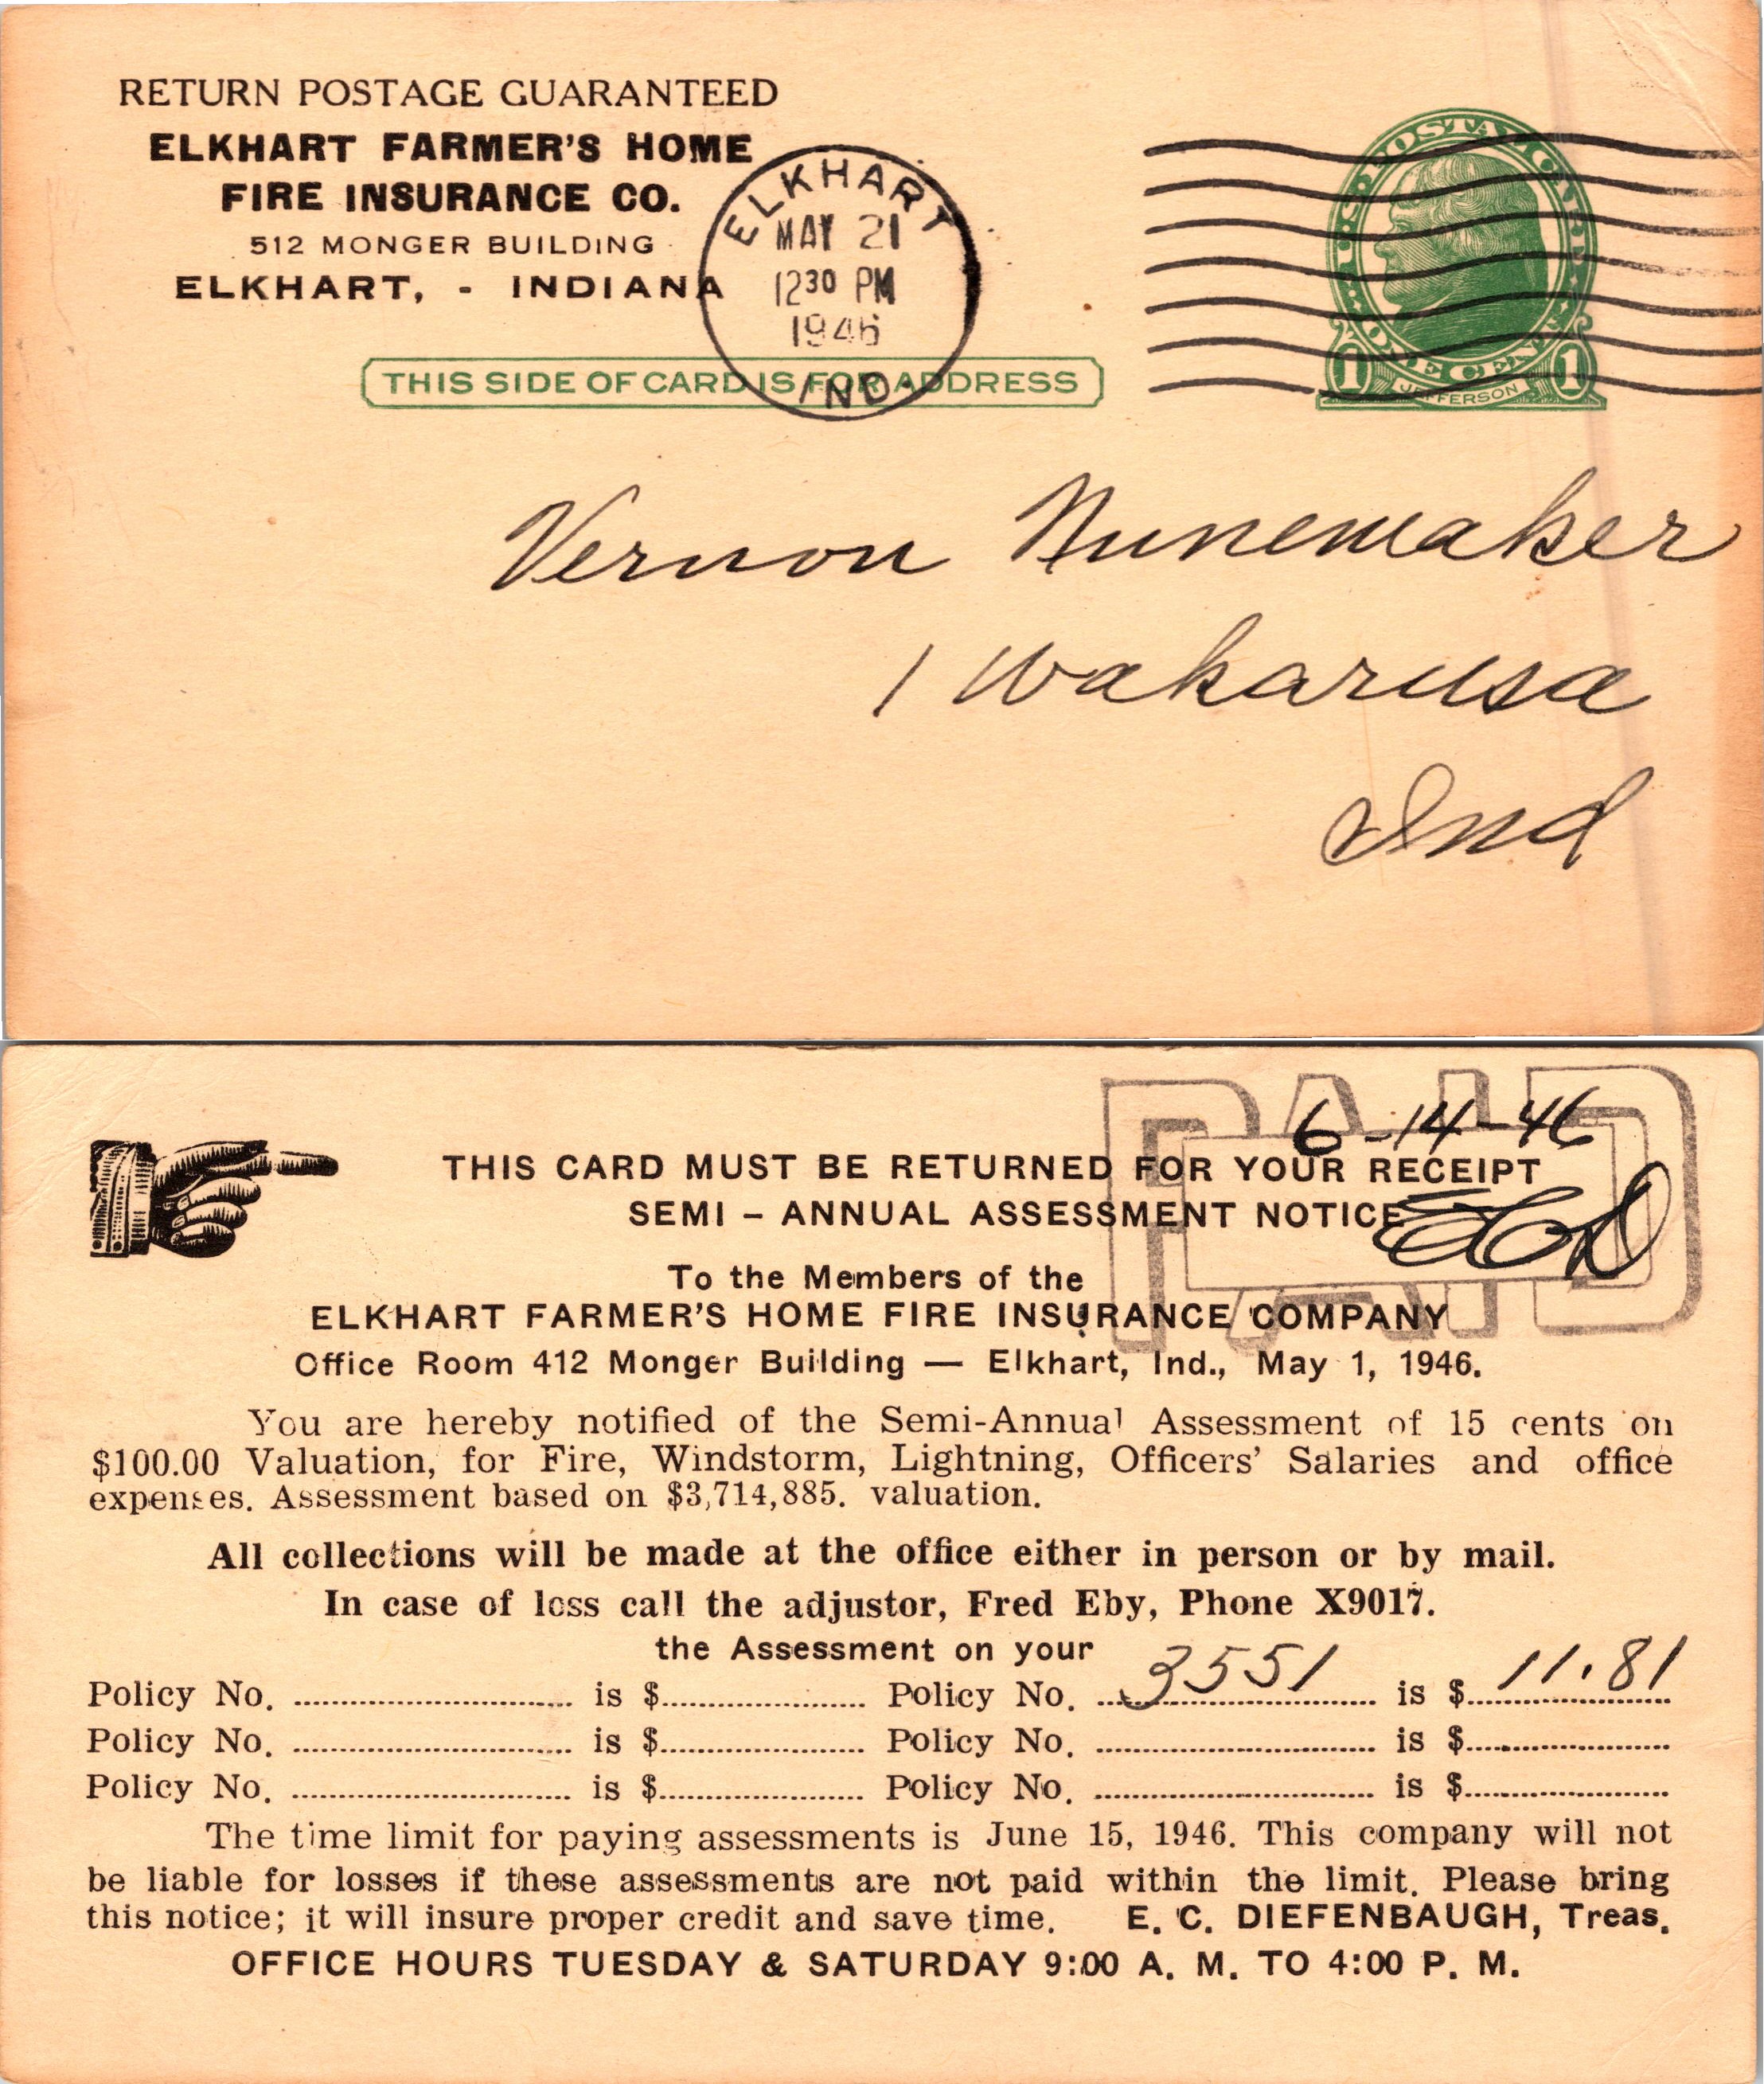 RETURN POSTAGE GUARANTEED
ELKHART FARMER'S HOME
FIRE INSURANCE CO.
512 MONGER BUILDING
ELKHART, - INDIANA
ELKHART
MAY 21
12 30 PM
1946
IND.
U.S. POSTAL CARD
ONE CENT
1 1
JEFFERSON
THIS SIDE OF CARD IS FOR ADDRESS
Vernon Nunemaker
1 Wakarusa
Ind
PAID
6-14-46
THIS CARD MUST BE RETURNED FOR YOUR RECEIPT
SEMI - ANNUAL ASSESSMENT NOTICE
ECD
To the Members of the
ELKHART FARMER'S HOME FIRE INSURANCE COMPANY
Office Room 412 Monger Building — Elkhart, Ind., May 1, 1946.
You are hereby notified of the Semi-Annual Assessment of 15 cents on
$100.00 Valuation, for Fire, Windstorm, Lightning, Officers' Salaries and office
expenses. Assessment based on $3,714,885. valuation.
All collections will be made at the office either in person or by mail.
In case of loss call the adjustor, Fred Eby, Phone X9017.
the Assessment on your
Policy No. .................... is $.................... Policy No. 3551 is $ 11.81
Policy No. .................... is $.................... Policy No. .................... is $....................
Policy No. .................... is $.................... Policy No. .................... is $....................
The time limit for paying assessments is June 15, 1946. This company will not
be liable for losses if these assessments are not paid within the limit. Please bring
this notice; it will insure proper credit and save time. E. C. DIEFENBAUGH, Treas.
OFFICE HOURS TUESDAY & SATURDAY 9:00 A. M. TO 4:00 P. M.